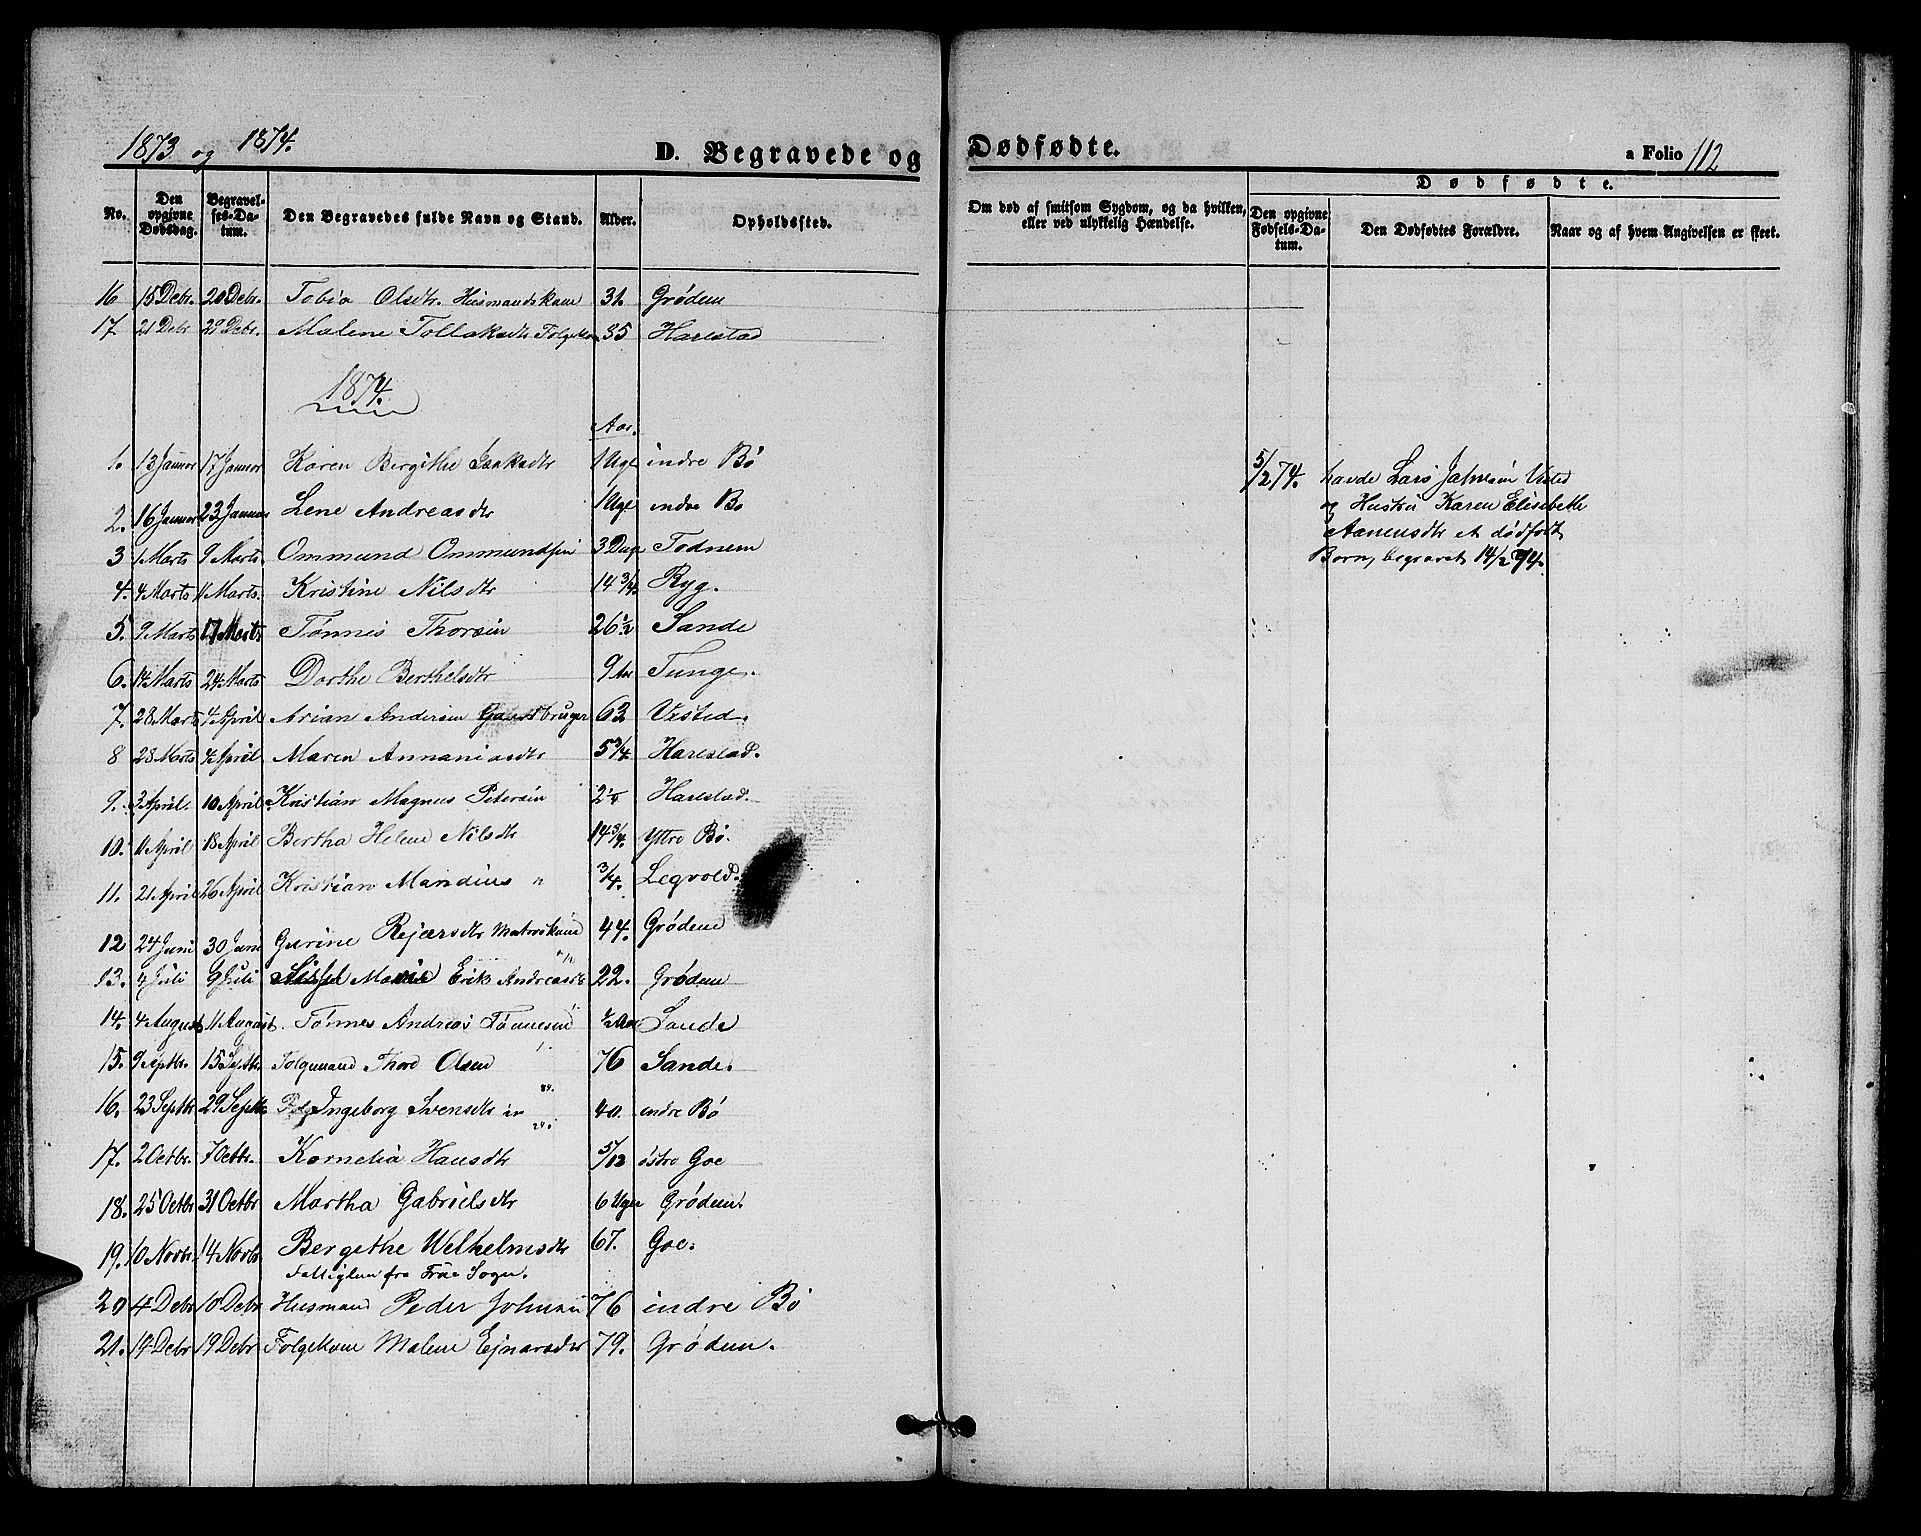 1873 og 1874.
D. Begravede og Dødfødte.
a Folio 112
No.
Den opgivne Dødsdag.
Begravelses-Datum.
Den Begravedes fulde Navn og Stand.
Alder.
Opholdssted.
Om død af smitsom Sygdom, og da hvilken, eller ved ulykkelig Hændelse.
Dødfødte.
Den opgivne Fødsels-Datum.
Den Dødfødtes Forældre.
Naar og af hvem Angivelsen er skeet.
16 15 Debr. 20 Debr. Tobia Olsdtr. Husmandskone 31. Grødem
17. 21 Debr 29 Debr. Malene Tollaksdtr 35 Harestad
1874.
Aar.
1. 13 Januar 17 Januar Karen Bergithe 1 Uge indre Bø
2. 16 Januar 23 Januar Lene Andreasdtr 1 Uge indre Bø
3 1 Marts 9 Marts. Ommund Ommundsen 3 Dage Todnem
4. 4 Marts 11 Marts. Kristine Nilsdtr 14 3/4 Ryg.
5. 9 Marts 17 Marts Tønnes Thorsen 26 1/2 Sande
6. 14 Marts 24 Marts Dorthe Berthelsdtr 9 Aar Tunge.
7. 28 Marts 4 April Arian Andersen Gaardbruger 63 Visted.
8 28 Marts 4 April Maren Annaniasdtr 5 3/4 Harestad.
9. 3 April. 10 April Kristian Magnus Petersen 2 1/4 Harestad.
10. 11 April 18 April Bertha Helene Nilsdtr 14 3/4. Yttre Bø.
11. 21 April 26 April Kristian Mandius " 3/4. Legvold.
12 24 Juni 30 Juni Gurine Rejersdtr 44. Grødem
13. 4 Juli 9 Juli Marie Erik Andreasdtr 22. Grødem
14. 4 August 11 August. Tønnes Andreas Tønnesen 1/2 Aar Sande
15. 9 Septbr. 15 Septbr. Folgemand Thore Olsen 76 Sande.
16. 23 Septbr 29 Septbr Ingeborg Svensdtr 40. indre Bø
17. 2 Octbr. 7 Octbr. Kornelia Hansdtr 5/12 østre Goe
18. 25 Octbr 31 Octbr Martha Gabrielsdtr 6 Uger Grødem.
19. 10 Novbr. 14 Novbr Bergethe Welhelmsdtr 67. Goe.
Fattiglem fra Sogn.
20 4 Debr 10 Debr Husmand Peder Johnsen 76 indre Bø
21. 14 Debr 19 Debr Folgekone Malene Ejnarsdtr 79. Grødem.
5/2 74. havde Lars Jahnsen Visted
og Hustru Karen Elisebeth
Aanensdtr et dødfødt
Barn, begravet 14/2 74.